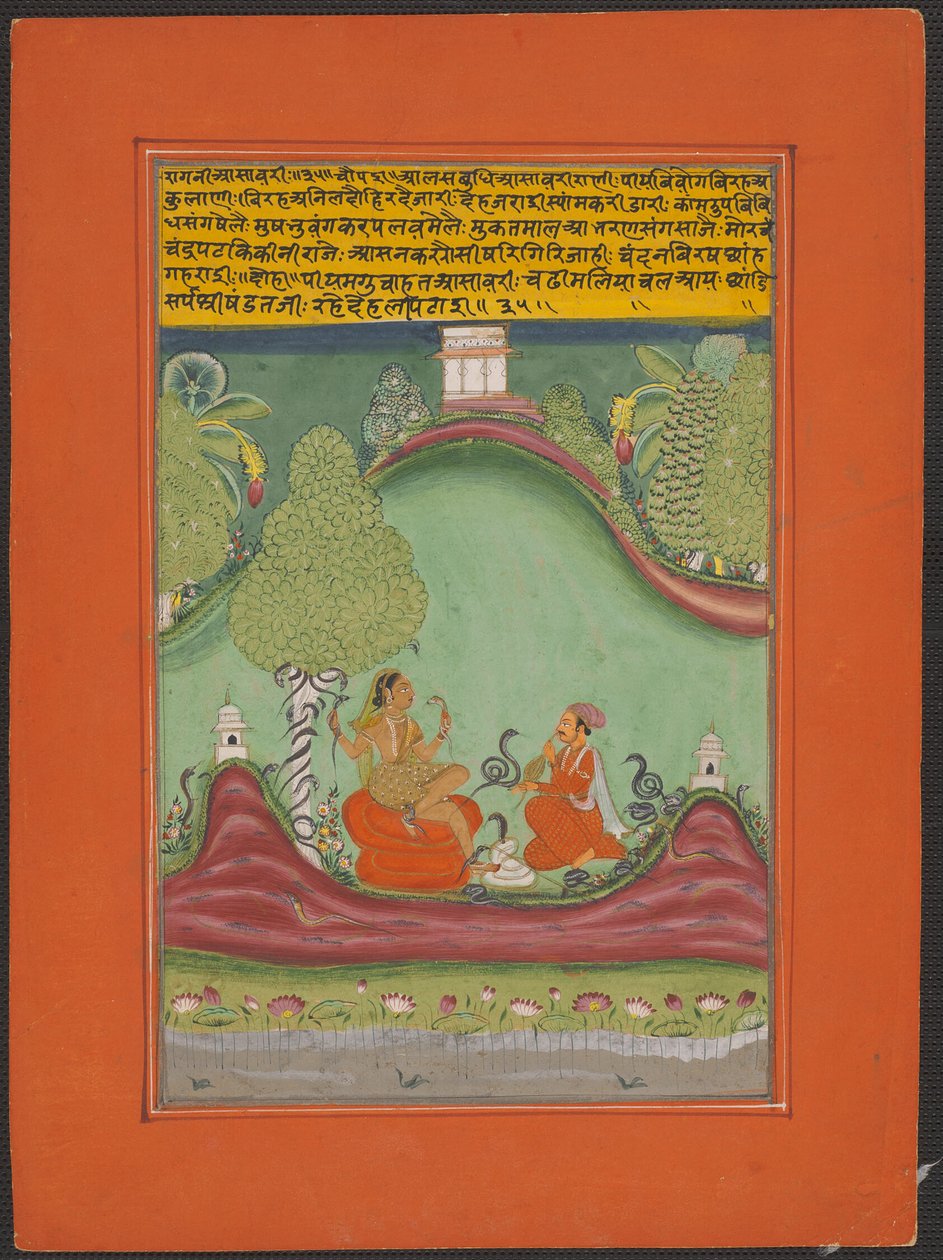 रागनी आसावरी:॥३५॥ चौपई॥ आलस बुधि आसावरी राणी: पीय बिवोग बिरह अ
कुलाणी: बिरह अनिल दौहि रदै जारी: देह जराई स्याम करी डारी: काम दुप बिबि
ध संग षेलै: मुष भुवंग कर पलव मेलै: मुकत माल आभरण संग साजै: मोर चं
चंद्र पट किंकीनी राजे: आसन करी सी षरि गिरि जाही: चंदन बिरष छांह
गहराई:॥दोहा॥ पीय मगु चाहत आसावरी: चढी मलियाचल आय: छांडि
सर्प श्रीषंड तजी: रहे देह लपिटाई॥३५॥